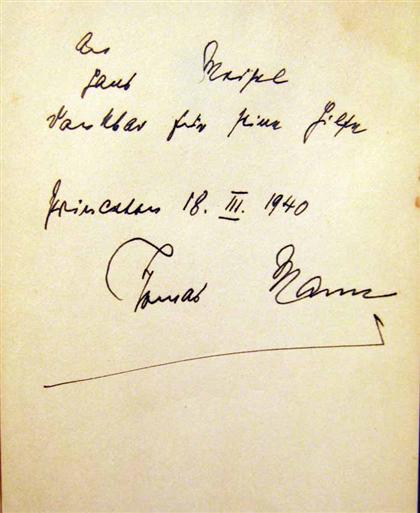 An
Hans Meisel
dankbar für seine Hilfe
Princeton 18. III. 1940
Thomas Mann